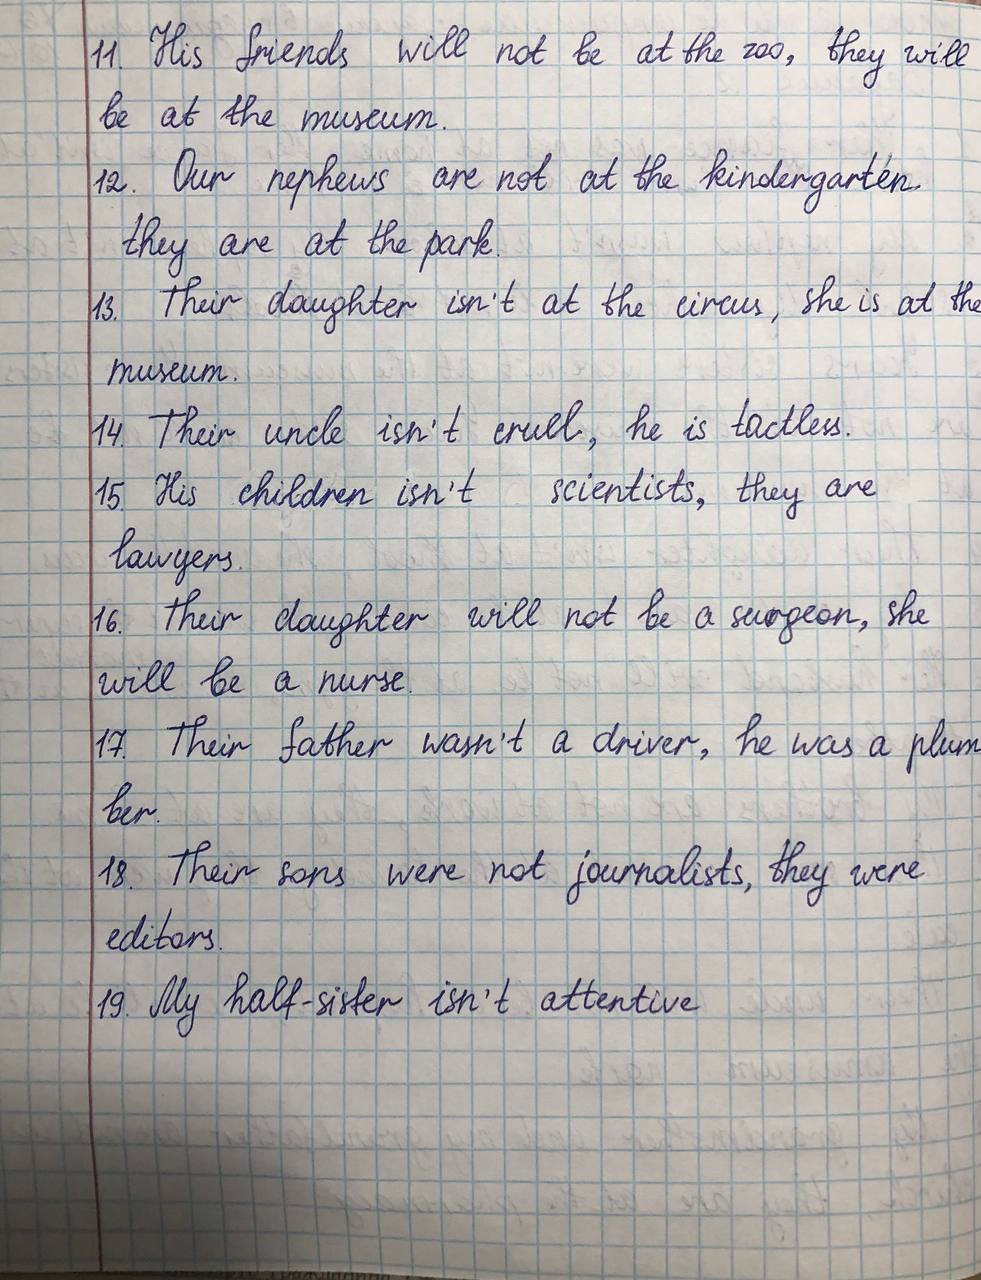 11. His friends will not be at the zoo, they will
be at the museum.
12. Our nephews are not at the kindergarten
they are at the park.
13. Their daughter isn't at the circus, she is at the
museum.
14. Their uncle isn't cruel, he is tactless.
15. His children isn't scientists, they are
lawyers.
16. Their daughter will not be a surgeon, she
will be a nurse.
17. Their father wasn't a driver, he was a plum
ber.
18. Their sons were not journalists, they were
editors.
19. My half-sister isn't attentive